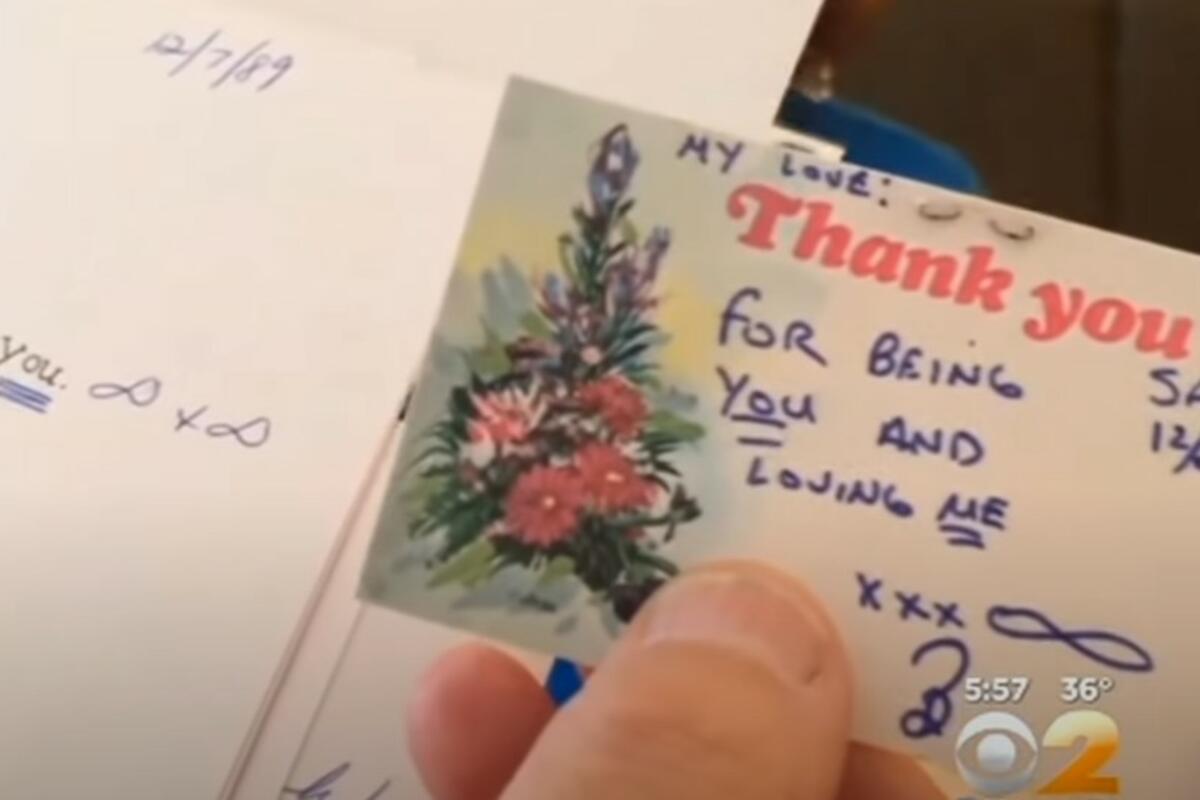 12/7/89
you. ∞
x ∞
MY LOVE:
Thank you
FOR BEING
YOU AND
LOVING ME
SA
12/
xxx ∞
5:57 36°
2